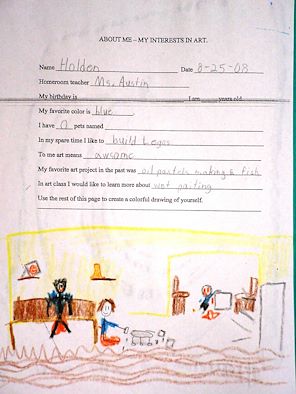 ABOUT ME – MY INTERESTS IN ART.
Name Holden Date 8-25-08
Homeroom teacher Ms. Austin
My birthday is I am years old.
My favorite color is blue
I have 0 pets named
In my spare time I like to build Legos
To me art means awsome
My favorite art project in the past was oil pastels making a fish
In art class I would like to learn more about wet paiting
Use the rest of this page to create a colorful drawing of yourself.